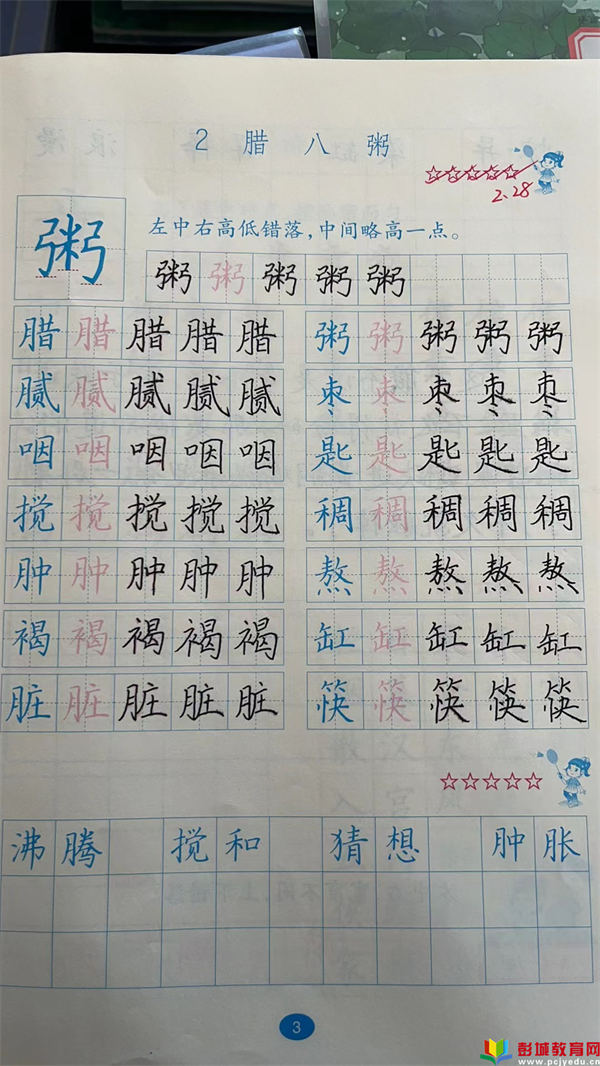 2 腊 八 粥
2.28
粥
左中右高低错落，中间略高一点。
粥 粥 粥 粥 粥
腊 腊 腊 腊 腊 粥 粥 粥 粥 粥
腻 腻 腻 腻 腻 枣 枣 枣 枣 枣
咽 咽 咽 咽 咽 匙 匙 匙 匙 匙
搅 搅 搅 搅 搅 稠 稠 稠 稠 稠
肿 肿 肿 肿 肿 熬 熬 熬 熬 熬
褐 褐 褐 褐 褐 缸 缸 缸 缸 缸
脏 脏 脏 脏 脏 筷 筷 筷 筷 筷
沸 腾 搅 和 猜 想 肿 胀
3
彭城教育网
www.pcjyedu.cn